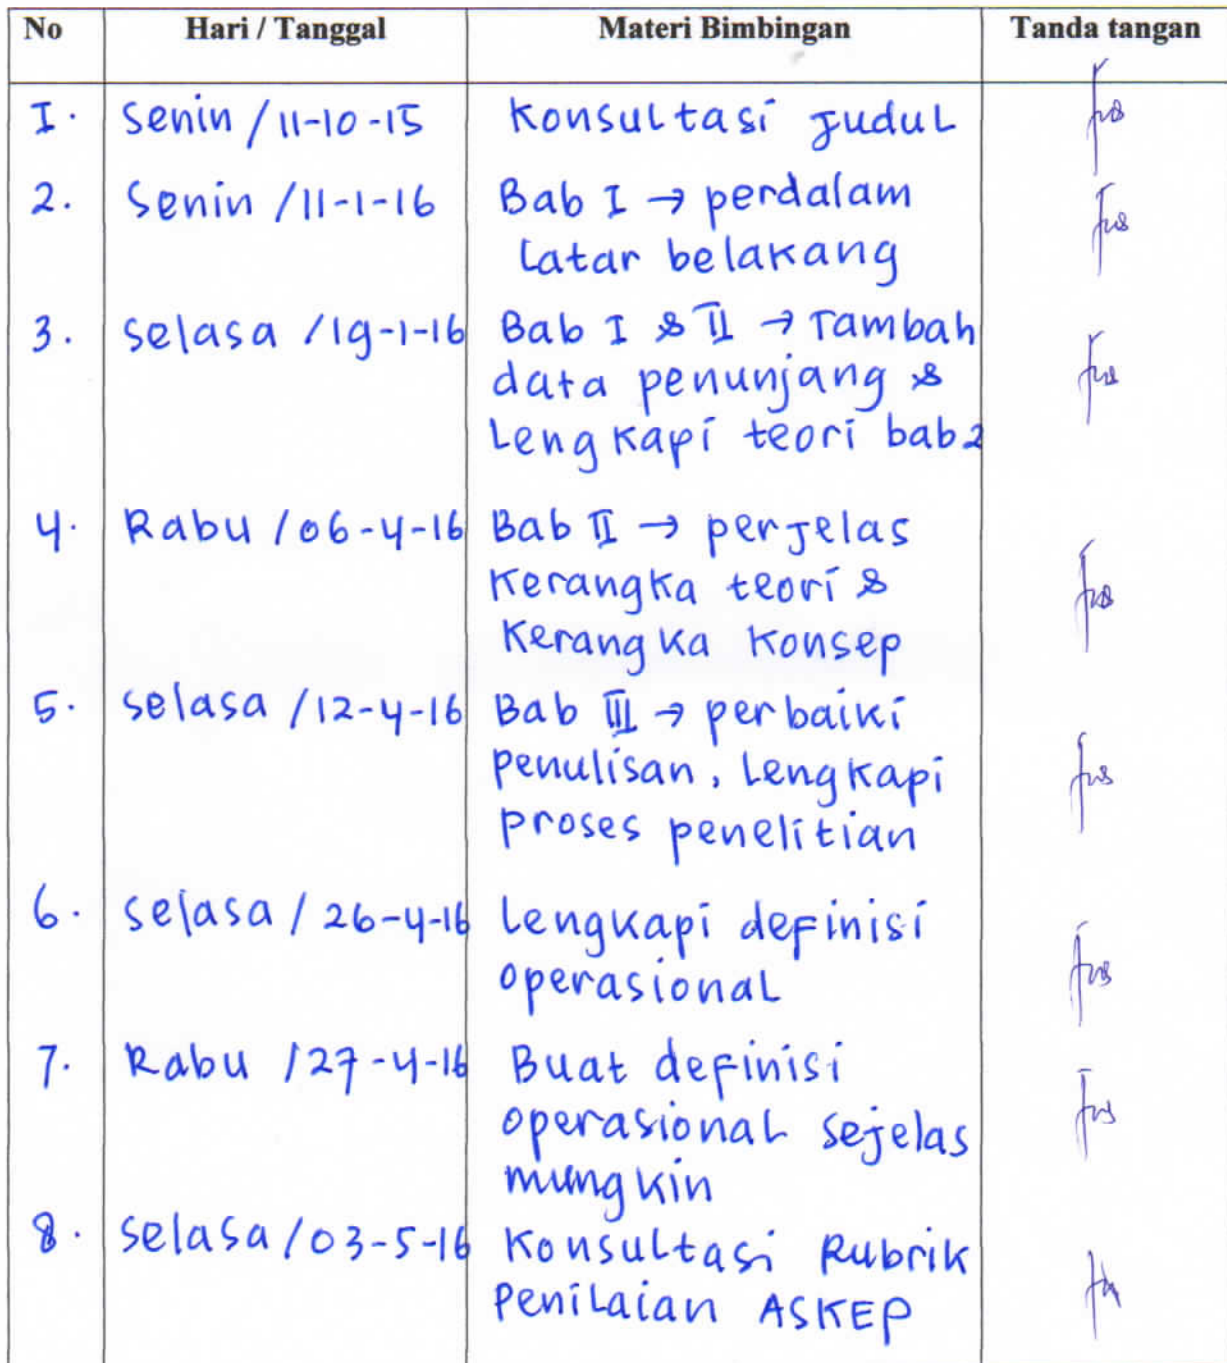 No Hari / Tanggal Materi Bimbingan Tanda tangan
I. Senin / 11-10-15 Konsultasi Judul
2. Senin / 11-1-16 Bab I → perdalam
Latar belakang
3. Selasa / 19-1-16 Bab I & II → Tambah
data penunjang &
Lengkapi teori bab 2
4. Rabu / 06-4-16 Bab II → perjelas
Kerangka teori &
Kerangka Konsep
5. Selasa / 12-4-16 Bab III → perbaiki
penulisan, Lengkapi
proses penelitian
6. Selasa / 26-4-16 Lengkapi definisi
operasional
7. Rabu / 27-4-16 Buat definisi
operasional sejelas
mungkin
8. Selasa / 03-5-16 Konsultasi Rubrik
Penilaian ASKEP